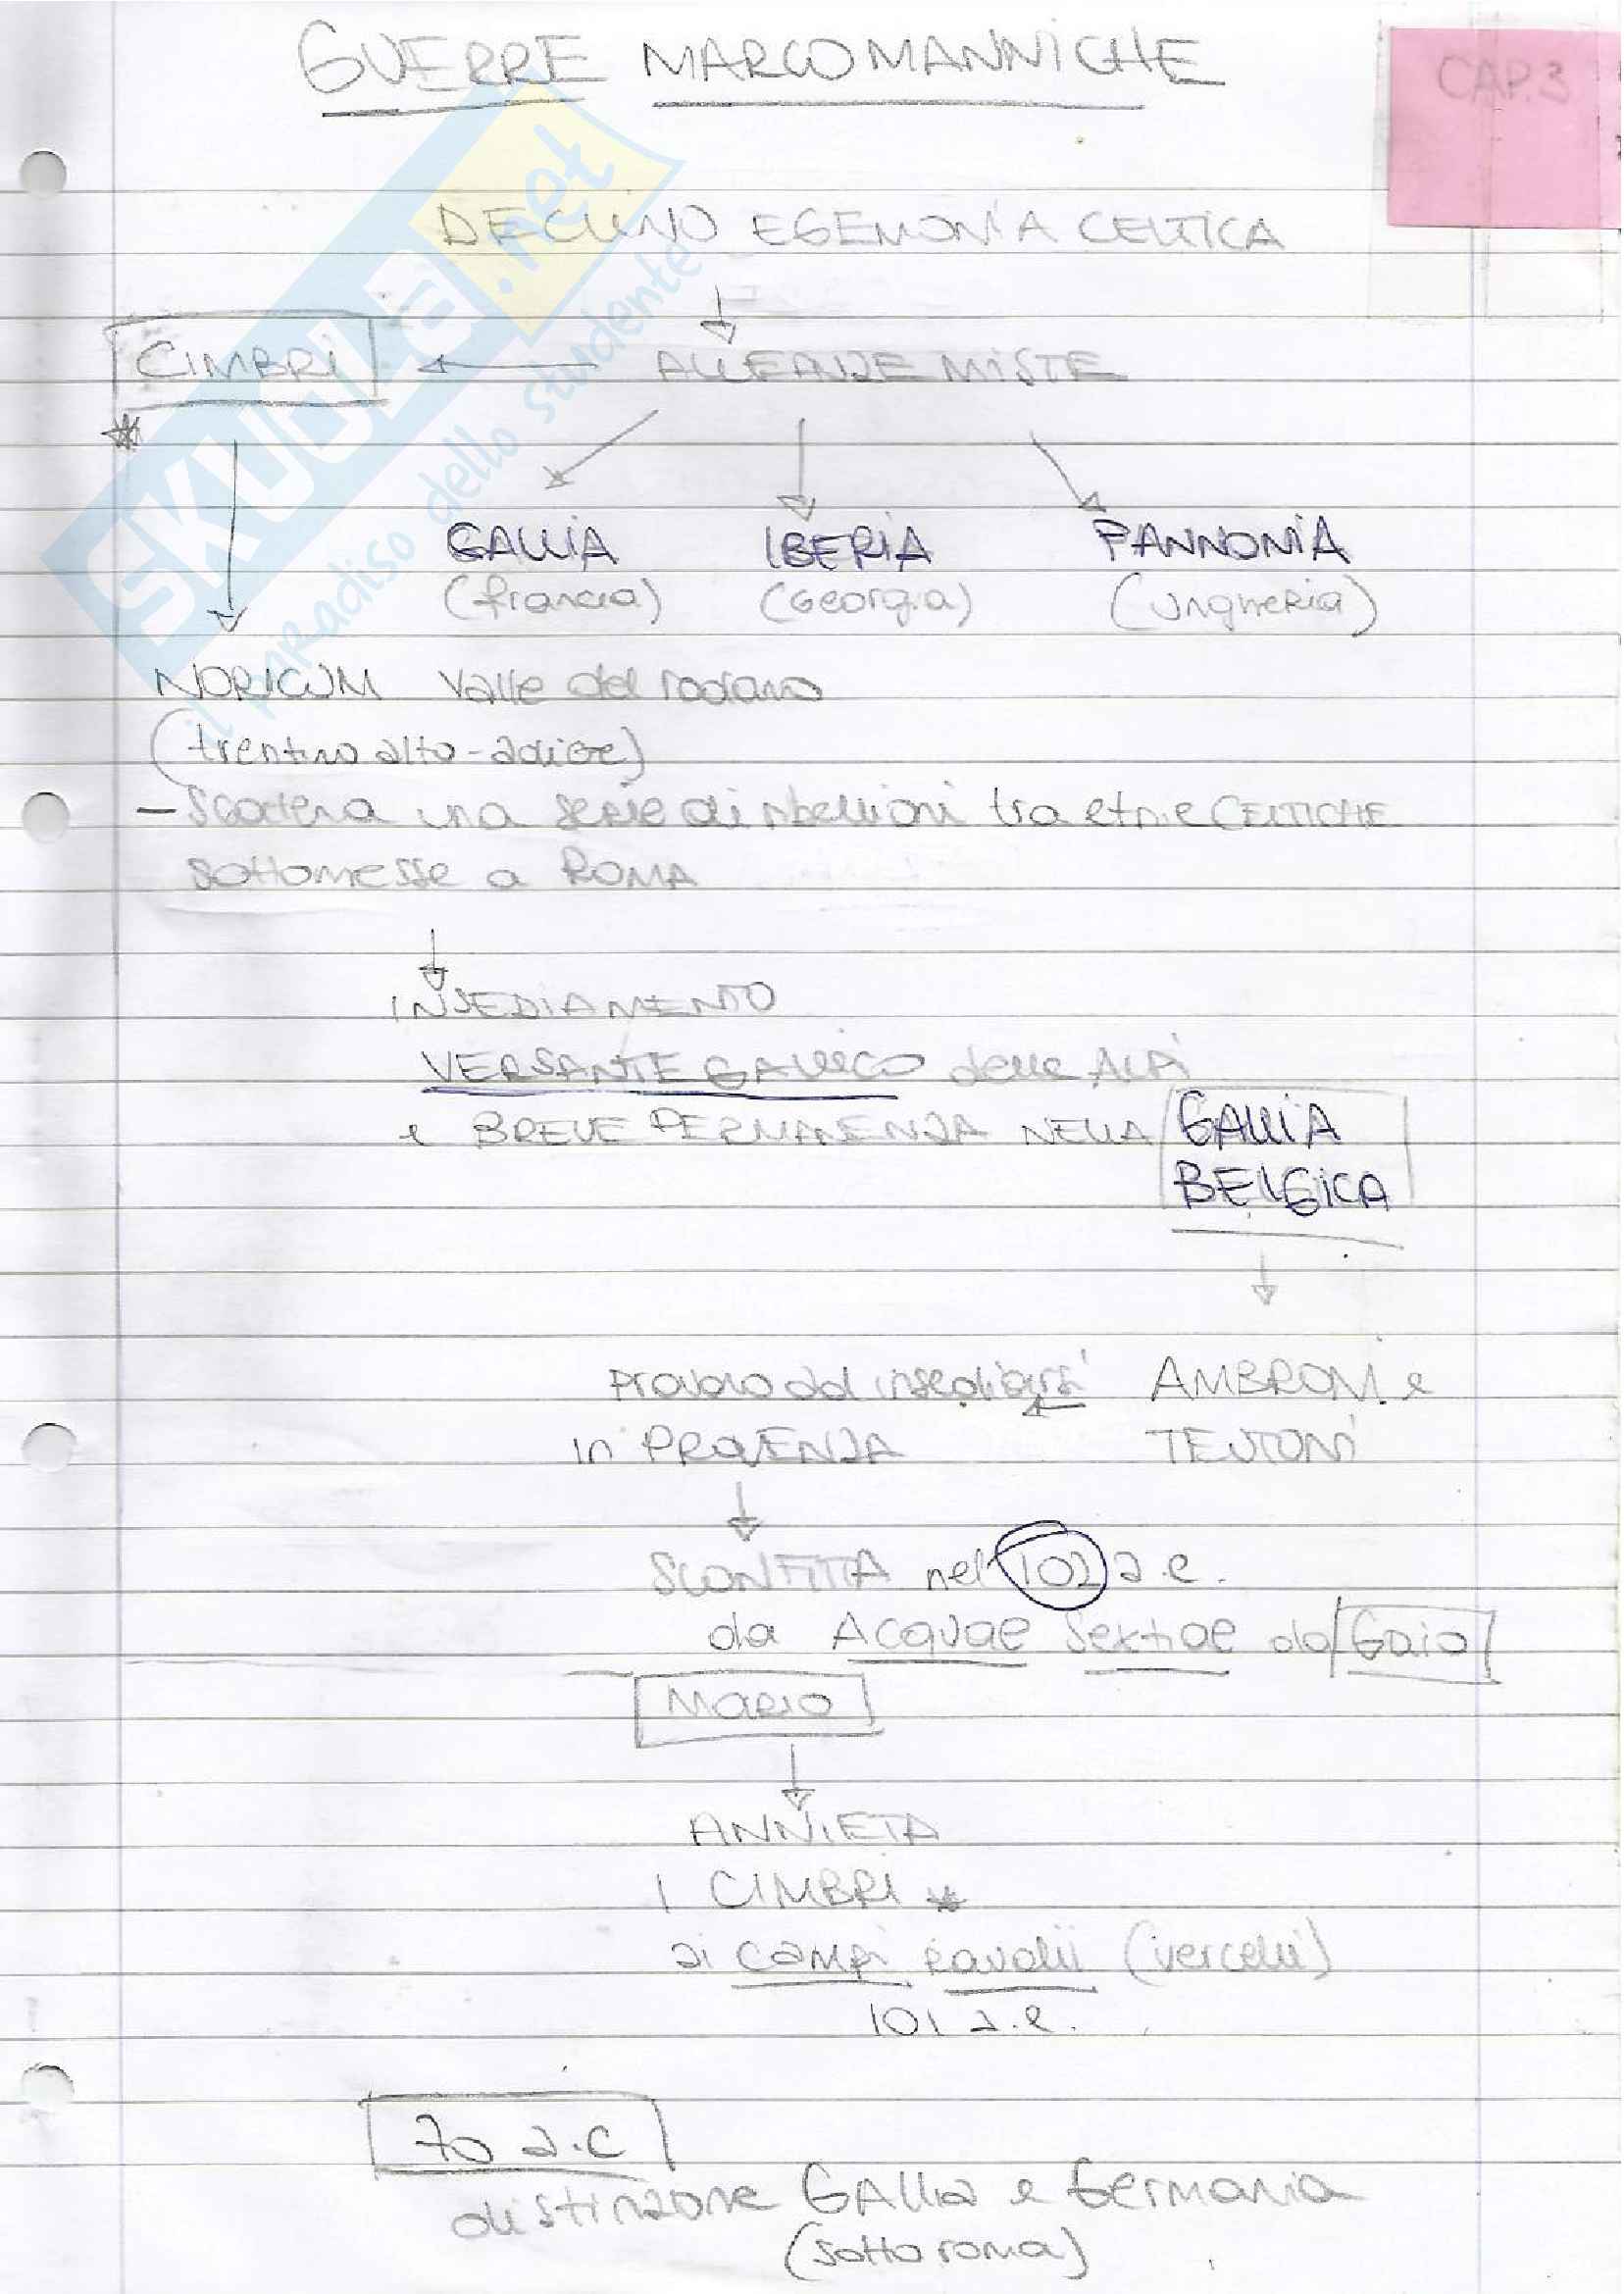 GUERRE MARCOMANNICHE
CAP. 3
DECLINO EGEMONIA CELTICA
CIMBRI ← ALLEANZE MISTE
*
GALLIA IBERIA PANNONIA
(francia) (Georgia) (Ungheria)
NORICUM Valle del rodano
(trentino alto-adige)
- Scatena una serie di ribellioni tra etnie CELTICHE
sottomesse a ROMA
INSEDIAMENTO
VERSANTE GALLICO delle ALPI
e BREVE PERMANENZA NELLA GALLIA
BELGICA
Provano ad insediarsi ← AMBRONI e
in PROVENZA TEUTONI
SCONFITTA nel 102 a.c.
da Acquae Sextiae da Gaio
MARIO
ANNIETA
I CIMBRI *
ai campi Raudii (vercelli)
101 a.c.
70 a.C
distinzone GAllia e Germania
(sotto roma)
SKUOLA.net
il paradiso dello studente